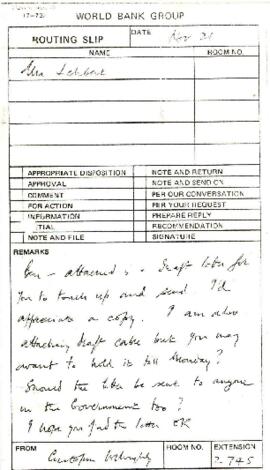 WORLD BANK GROUP
ROUTING SLIP
DATE
Nov 21
NAME
ROOM NO.
APPROPRIATE DISPOSITION NOTE AND RETURN
APPROVAL NOTE AND SEND ON
COMMENT PER OUR CONVERSATION
FOR ACTION PER YOUR REQUEST
INFORMATION PREPARE REPLY
TIAL RECOMMENDATION
NOTE AND FILE SIGNATURE
REMARKS
attached is a draft letter for
you to touch up and send. I'd
appreciate a copy. I am also
attaching draft cable but you may
want to hold it till Monday?
Should the letter be sent to anyone
in the Government too?
I hope you find the letter OK
FROM
Christopher Willoughby
ROOM NO.
EXTENSION
2-745